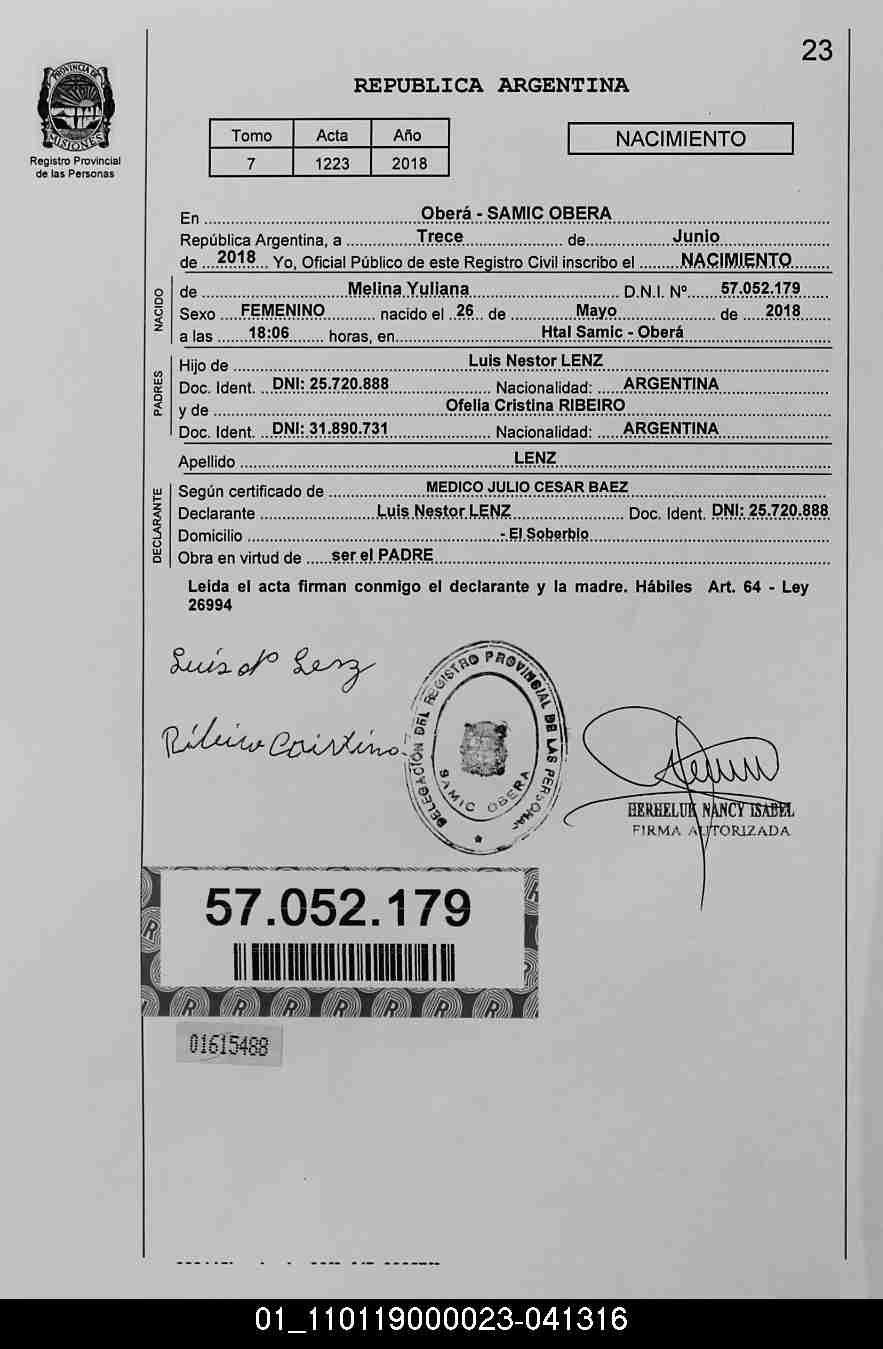 23
PROVINCIA DE
MISIONES
Registro Provincial
de las Personas
REPUBLICA ARGENTINA
Tomo Acta Año
7 1223 2018
NACIMIENTO
En Oberá - SAMIC OBERA
República Argentina, a Trece de Junio
de 2018 Yo, Oficial Público de este Registro Civil inscribo el NACIMIENTO
NACIDO
de Melina Yuliana D.N.I. Nº 57.052.179
Sexo FEMENINO nacido el 26 de Mayo de 2018
a las 18:06 horas, en Htal Samic - Oberá
PADRES
Hijo de Luis Nestor LENZ
Doc. Ident. DNI: 25.720.888 Nacionalidad: ARGENTINA
y de Ofelia Cristina RIBEIRO
Doc. Ident. DNI: 31.890.731 Nacionalidad: ARGENTINA
Apellido LENZ
DECLARANTE
Según certificado de MEDICO JULIO CESAR BAEZ
Declarante Luis Nestor LENZ Doc. Ident. DNI: 25.720.888
Domicilio - El Soberbio
Obra en virtud de ser el PADRE
Leida el acta firman conmigo el declarante y la madre. Hábiles Art. 64 - Ley
26994
Luis N Lenz
Ribeiro Cristina
DELEGACIÓN DEL REGISTRO PROVINCIAL DE LAS PERSONAS
SAMIC OBERA
NANCY ISABEL
FIRMA AUTORIZADA
57.052.179
01615488
01_110119000023-041316